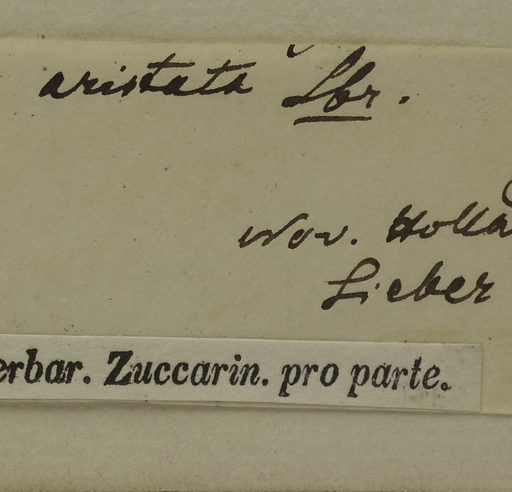 aristata Lbr.
Nov. Holla
Sieber
erbar. Zuccarin. pro parte.